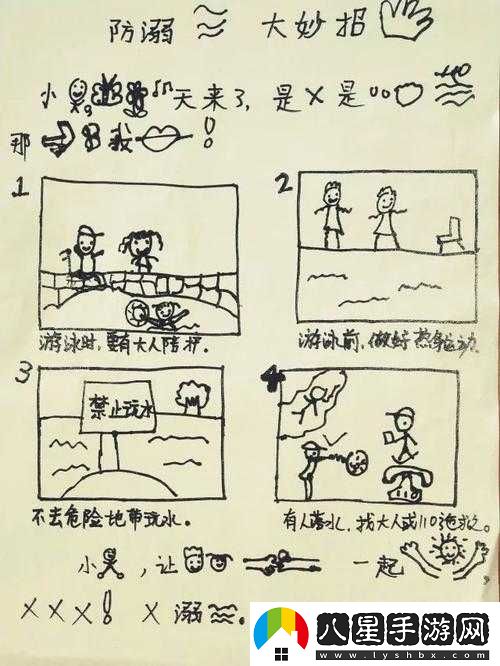 防溺 大妙招
小 天来了，是 X 是
那 我 ！
1
2
游泳时，要有大人陪护。
游泳前，做好热身运动。
3
4
禁止玩水
不去危险地带玩水。
有人落水，找大人或110急救。
小 ，让 一起
X X X ！ X 溺 。
八星手游网
www.lyshbx.com